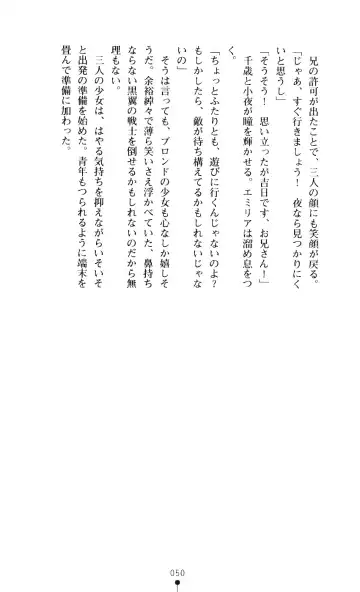 兄の許可が出たことで、三人の顔にも笑顔が戻る。
「じゃあ、すぐ行きましょう！　夜なら見つかりにく
いと思うし」
「そうそう！　思い立ったが吉日です、お兄さん！」
　千歳と小夜が瞳を輝かせる。エミリアは溜め息をつ
く。
「ちょっとふたりとも、遊びに行くんじゃないのよ？
もしかしたら、敵が待ち構えてるかもしれないじゃな
いの」
　そうは言っても、ブロンドの少女も心なしか嬉しそ
うだ。余裕綽々で薄ら笑いさえ浮かべていた、鼻持ち
ならない黒翼の戦士を倒せるかもしれないのだから無
理もない。
　三人の少女は、はやる気持ちを抑えながらいそいそ
と出発の準備を始めた。青年もつられるように端末を
畳んで準備に加わった。
050